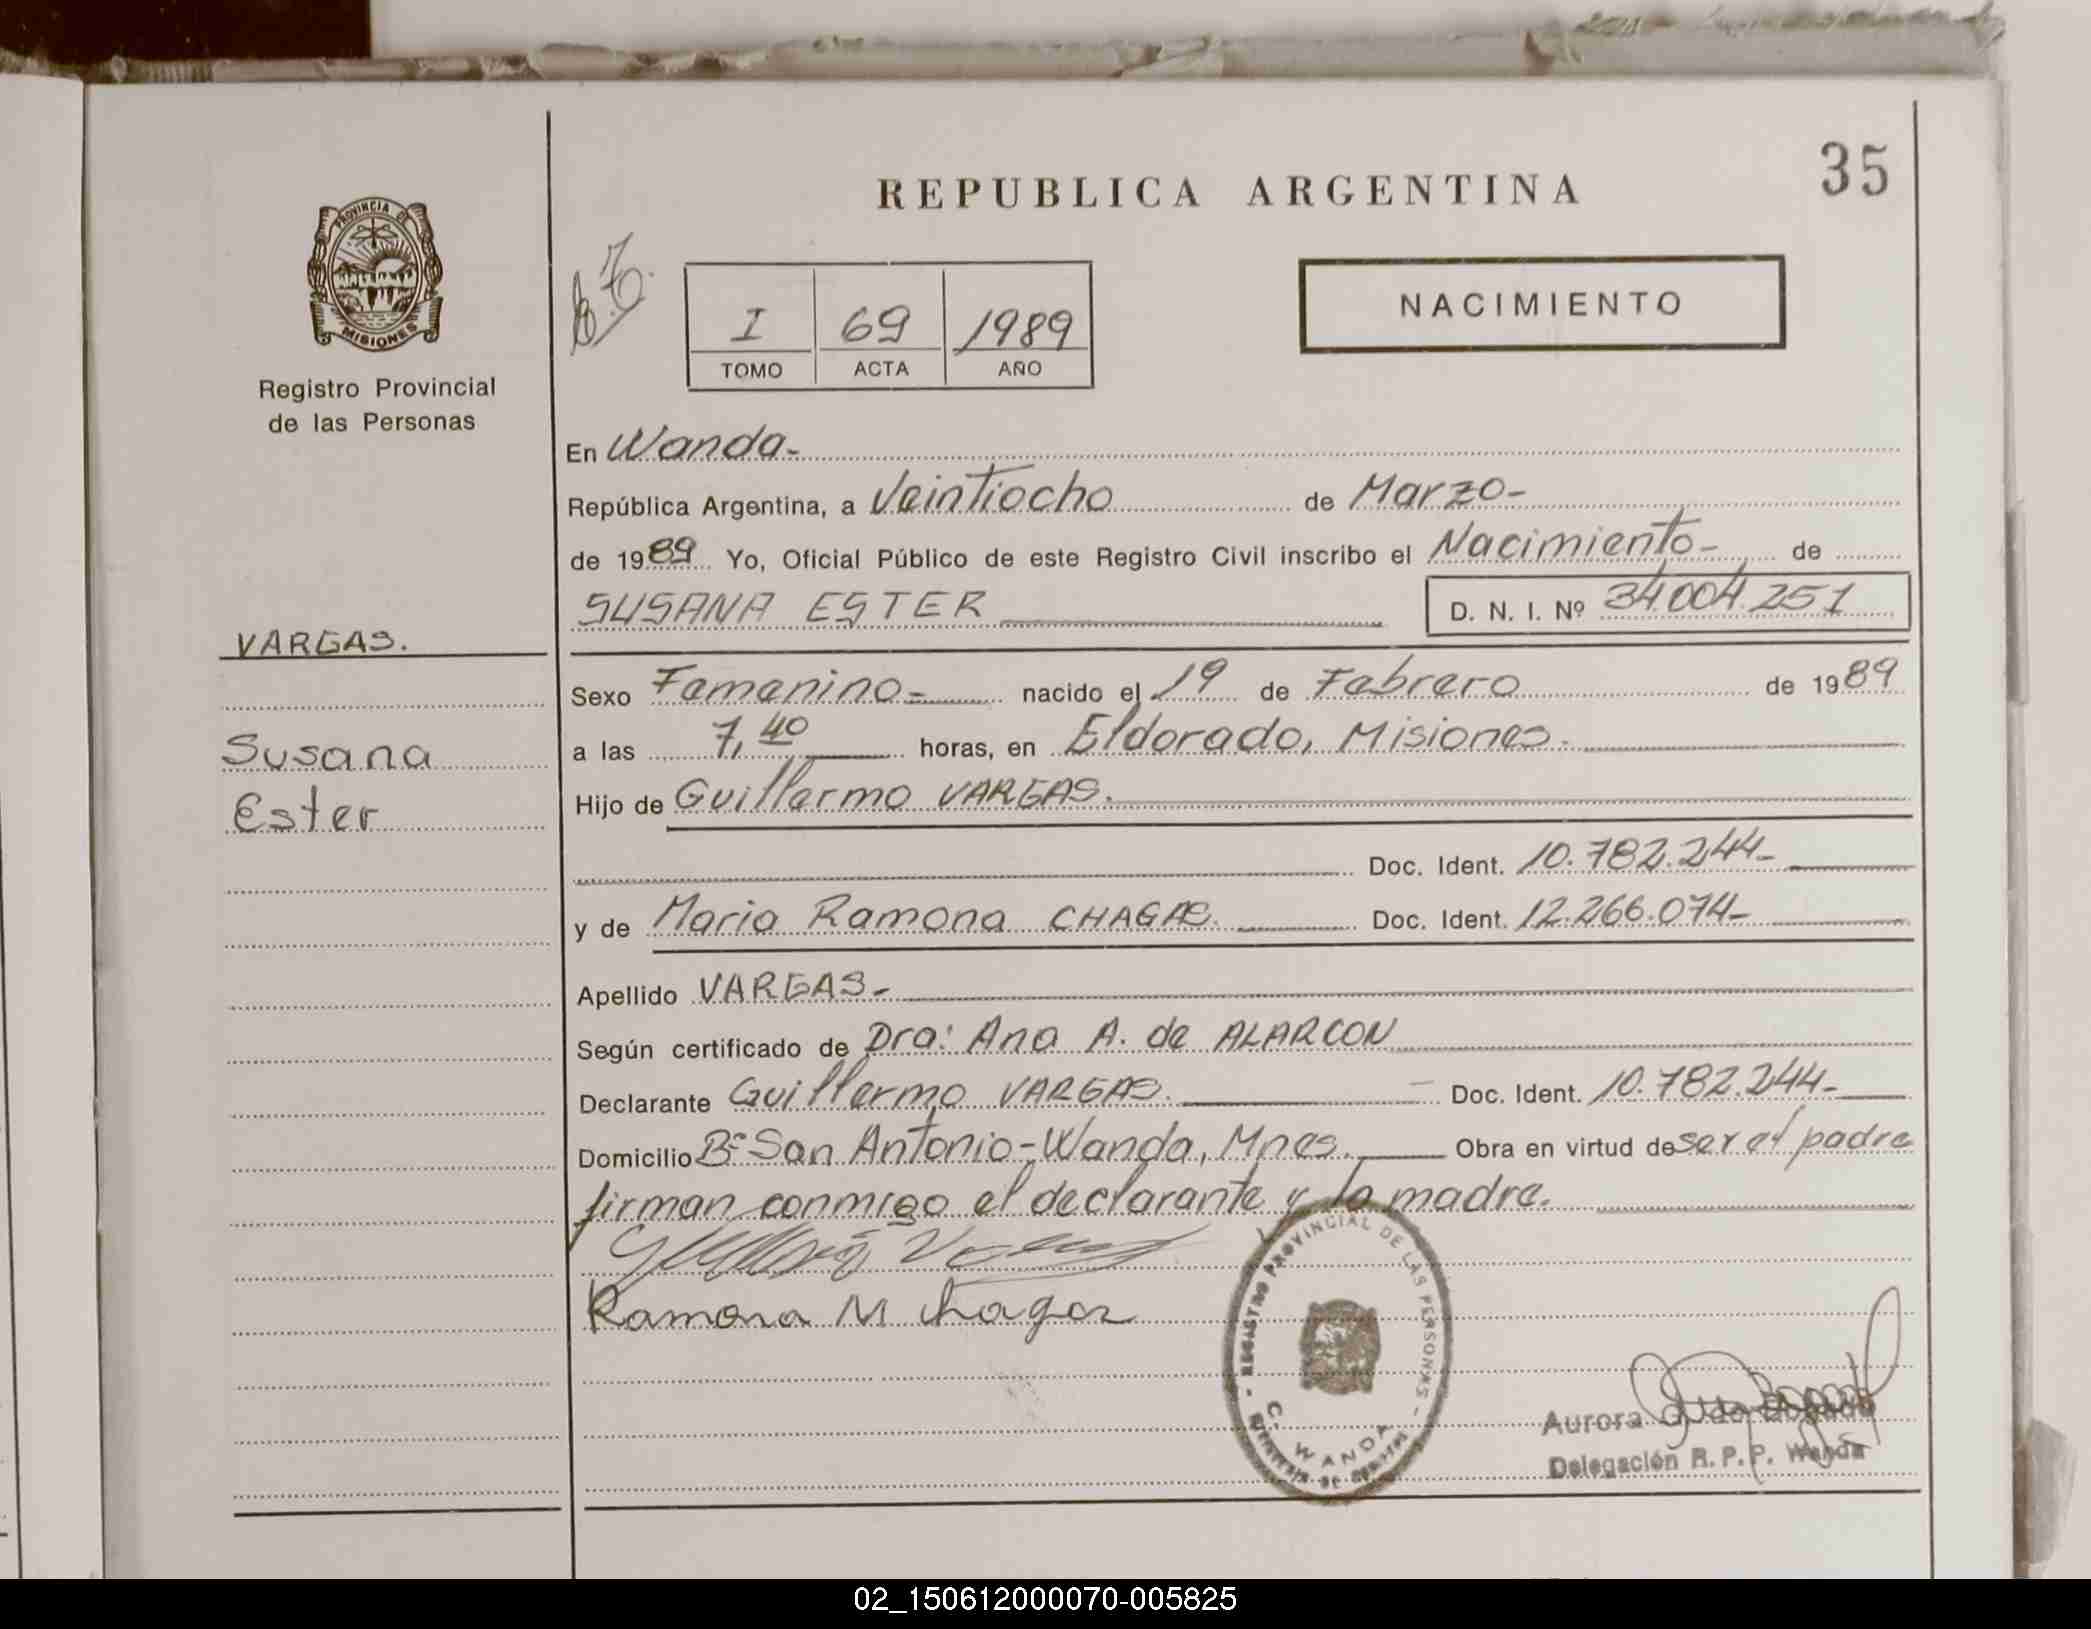 35
REPUBLICA ARGENTINA
PROVINCIA DE
MISIONES
Registro Provincial
de las Personas
I 69 1989
TOMO ACTA AÑO
NACIMIENTO
En Wanda-
República Argentina, a Veintiocho de Marzo-
de 1989 Yo, Oficial Público de este Registro Civil inscribo el Nacimiento- de
SUSANA ESTER D. N. I. Nº 34.004.251
VARGAS.
Susana
Ester
Sexo Femenino- nacido el 19 de Febrero de 1989
a las 7,40 horas, en Eldorado, Misiones.
Hijo de Guillermo VARGAS.
Doc. Ident. 10.782.244-
y de Maria Ramona CHAGAS. Doc. Ident. 12.266.074-
Apellido VARGAS-
Según certificado de Dra: Ana A. de ALARCON
Declarante Guillermo VARGAS. Doc. Ident. 10.782.244-
Domicilio Bº San Antonio-Wanda, Mnes. Obra en virtud de ser el padre
firman conmigo el declarante y la madre.
Ramona M Chagas
- REGISTRO PROVINCIAL DE LAS PERSONAS -
C. WANDA
Aurora
Delegación R. P. P. Wanda
02_150612000070-005825